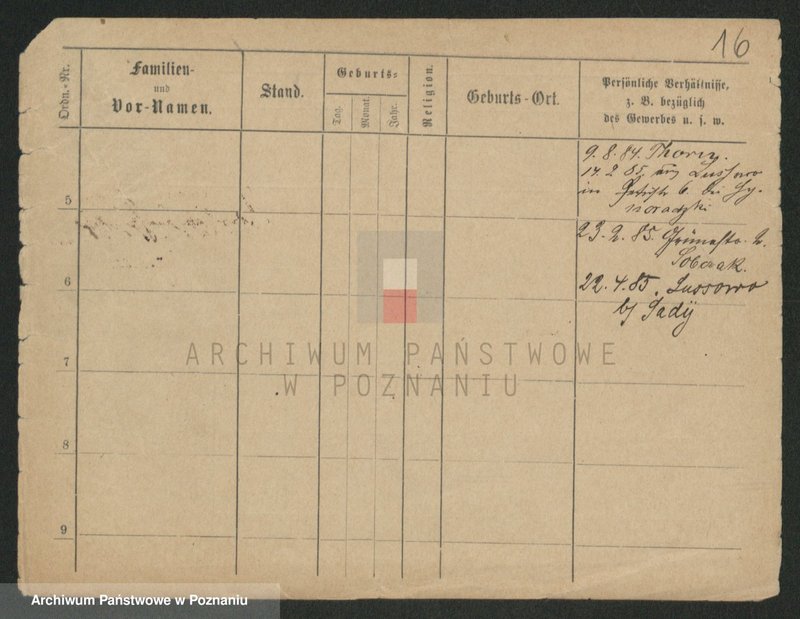 16
Ordn.-Nr.
Familien-
und
Vor-Namen.
Stand.
Geburts-
Tag.
Monat.
Jahr.
Religion.
Geburts-Ort.
Persönliche Verhältnisse,
z. B. bezüglich
des Gewerbes u. s. w.
9. 8. 84. Thorn.
17. 2 85. aus Lussowo
in 6. bei
23. 2. 85. Grünestr. 2.
Sobczak.
22. 4. 85. Lussowo
5
6
7
8
9
ARCHIWUM PAŃSTWOWE
W POZNANIU
Archiwum Państwowe w Poznaniu